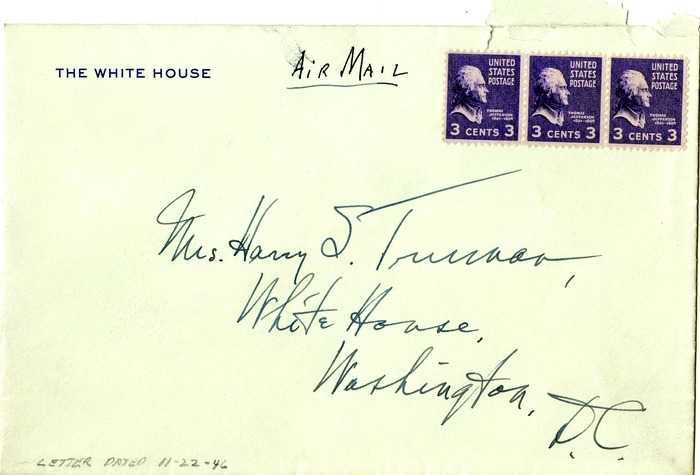 THE WHITE HOUSE
AIR MAIL
UNITED STATES POSTAGE
THOMAS JEFFERSON
1801-1809
3 CENTS 3
UNITED STATES POSTAGE
THOMAS JEFFERSON
1801-1809
3 CENTS 3
UNITED STATES POSTAGE
THOMAS JEFFERSON
1801-1809
3 CENTS 3
Mrs. Harry S. Truman,
White House,
Washington, D.C.
LETTER DATED 11-22-46